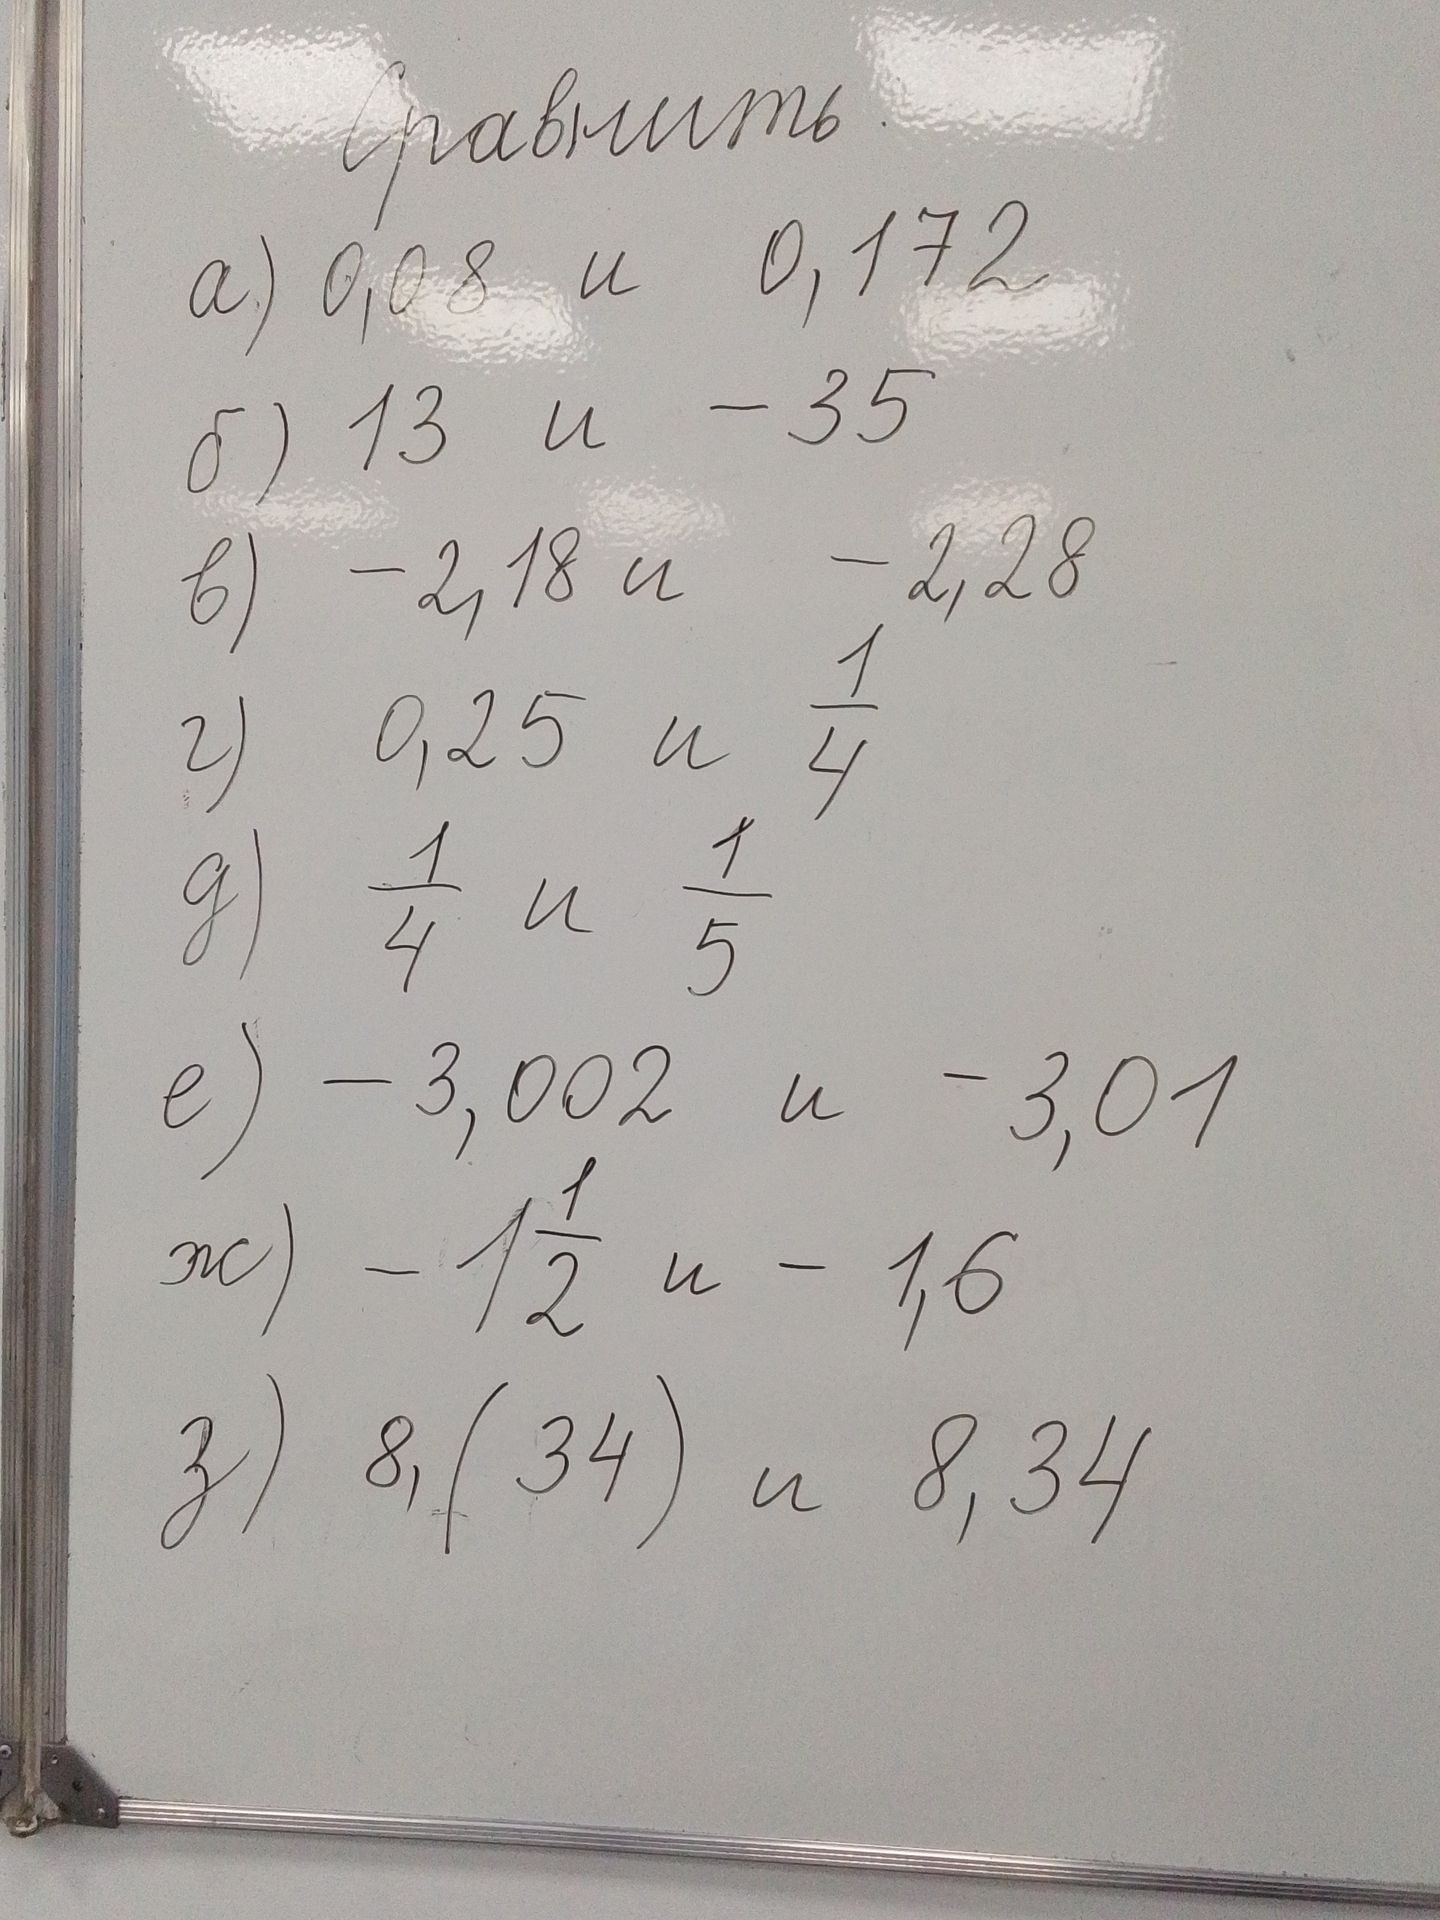 Сравнить.
а) 0,08 и 0,172
б) 13 и -35
в) -2,18 и -2,28
г) 0,25 и 1/4
д) 1/4 и 1/5
е) -3,002 и -3,01
ж) -1 1/2 и -1,6
з) 8,(34) и 8,34